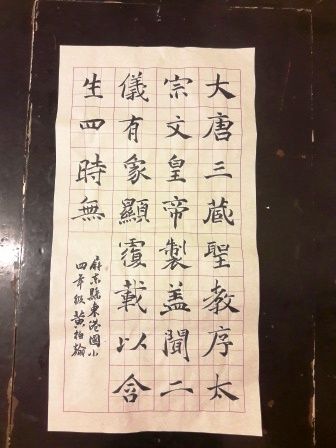 大唐三藏聖教序太
宗文皇帝製盖聞二
儀有象顯覆載以含
生四時無
屏東縣東港國小
四年級黃柏翰